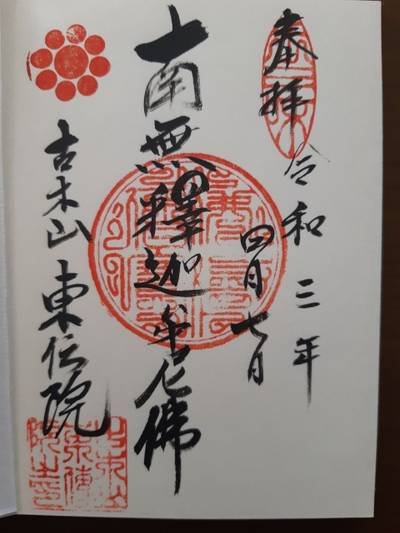 奉拝
令和三年
四月七日
南無釋迦牟尼佛
古木山 東伝院